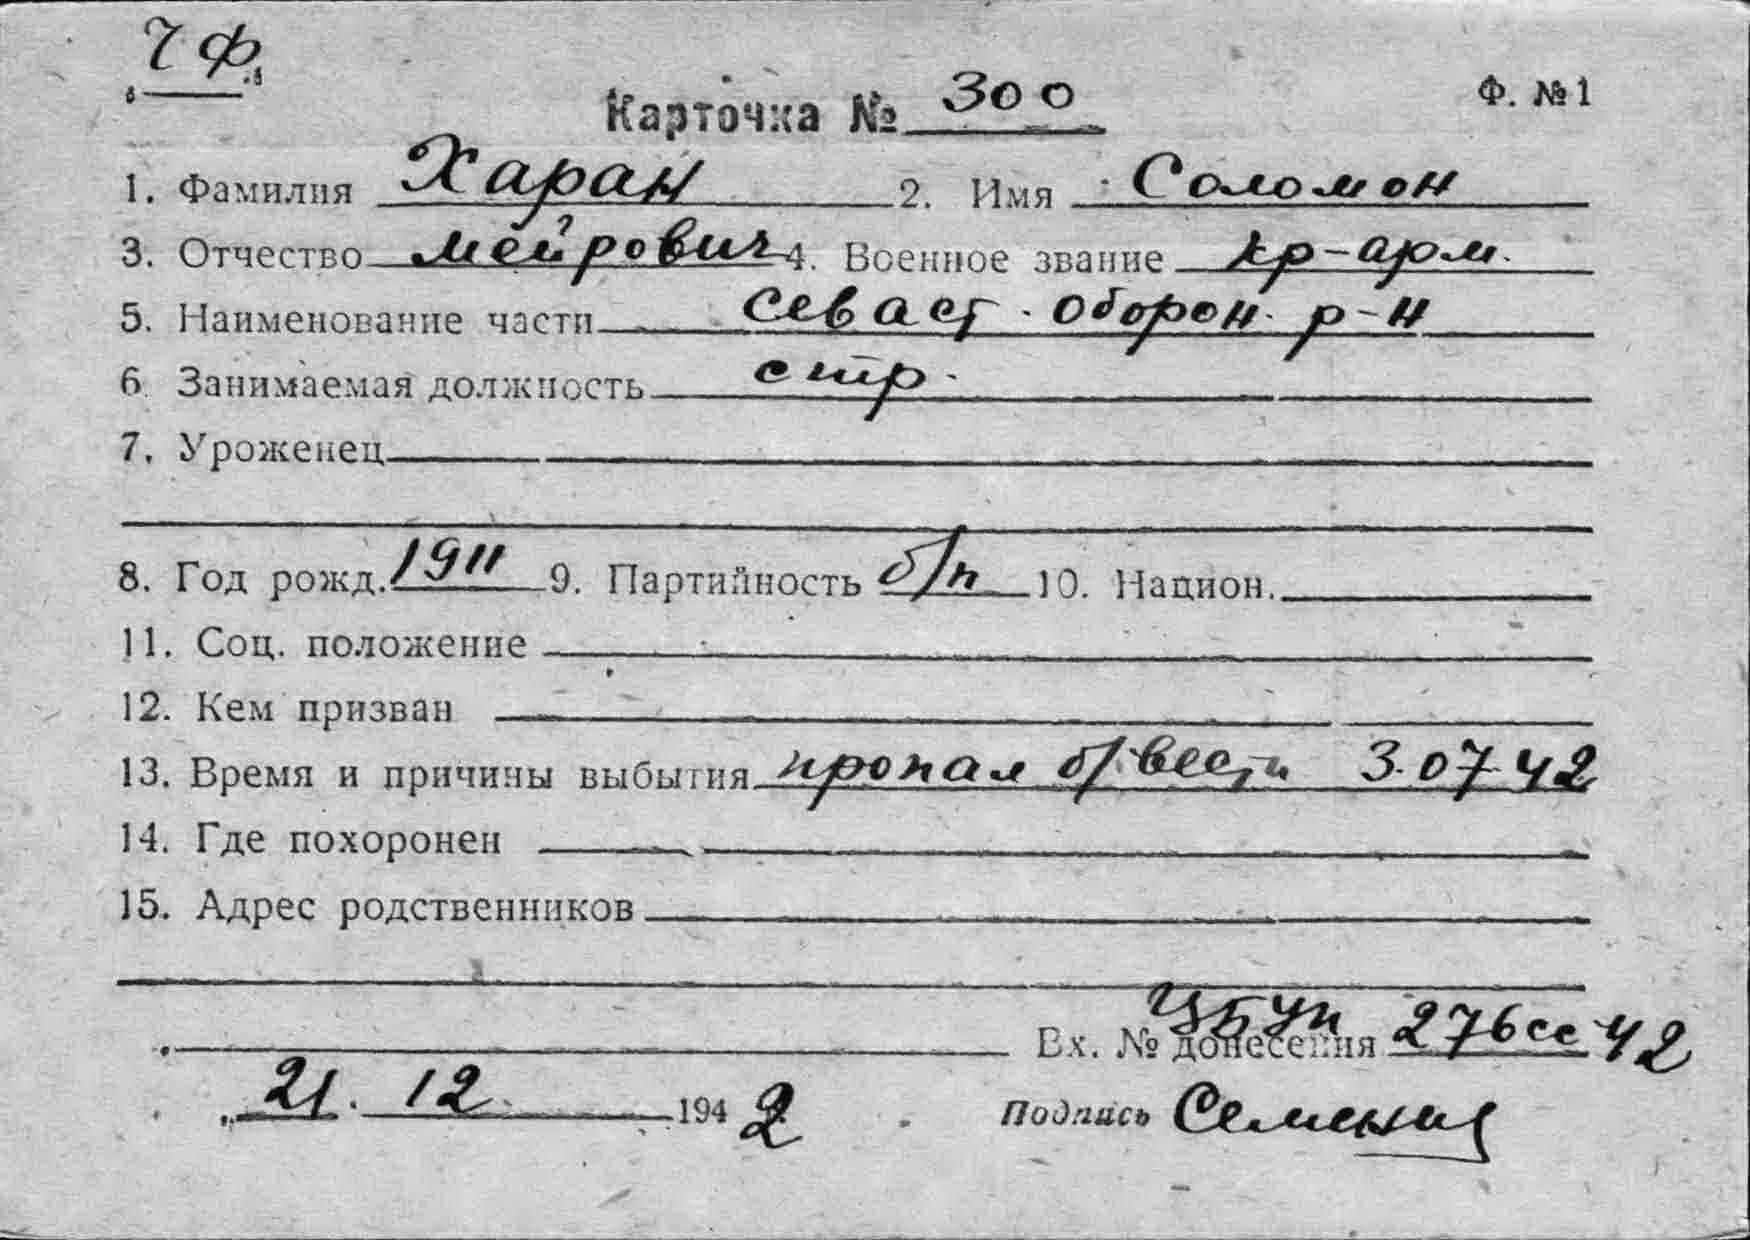 ЧФ
Карточка № 300 Ф. №1
1. Фамилия Харан 2. Имя Соломон
3. Отчество Мейрович 4. Военное звание кр-арм.
5. Наименование части Севаст. оборон. р-н
6. Занимаемая должность стр.
7. Уроженец
8. Год рожд. 1911 9. Партийность б/п 10. Национ.
11. Соц. положение
12. Кем призван
13. Время и причины выбытия пропал б/вести 3.07.42
14. Где похоронен
15. Адрес родственников
ЦБУП
Вх. № донесения 276сс-42
21. 12. 1942 Подпись